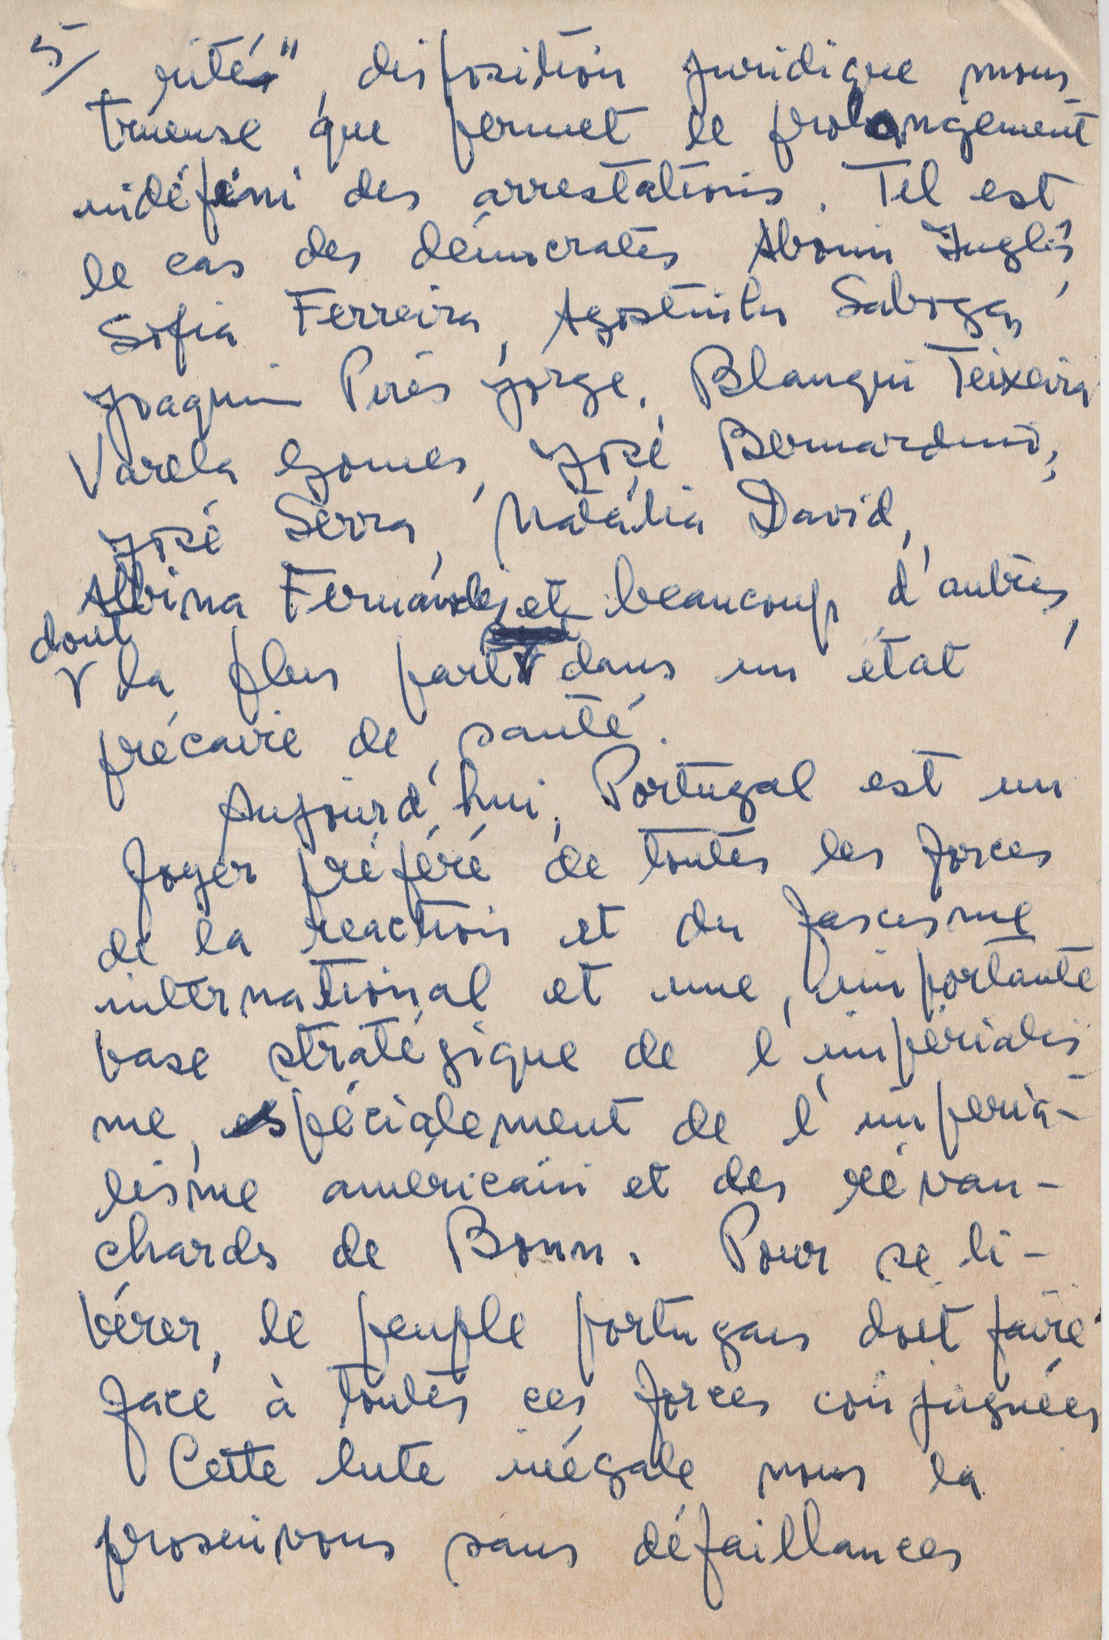 5/
rité", disposition juridique mons
trueuse que permet le prolongement
indéfini des arrestations. Tel est
le cas des démocrates Aboim Inglês,
Sofia Ferreira, Agostinho Saboga,
Joaquim Pires Jorge, Blanqui Teixeira
Varela Gomes, José Bernardino,
José Serra, Natália David,
Albina Fernandes et beaucoup d'autres,
dont
la plus part dans un état
précaire de santé.
Aujourd'hui, Portugal est un
foyer préféré de toutes les forces
de la reaction et du fascisme
international et une importante
base stratégique de l'impérialis
me, espécialement de l'impéria-
lisme américain et des révan-
chards de Bonn. Pour se li-
bérer, le peuple portugais doit faire
face à toutes ces forces conjuguées
Cette lute inégale nous la
prosuivons sans défaillances